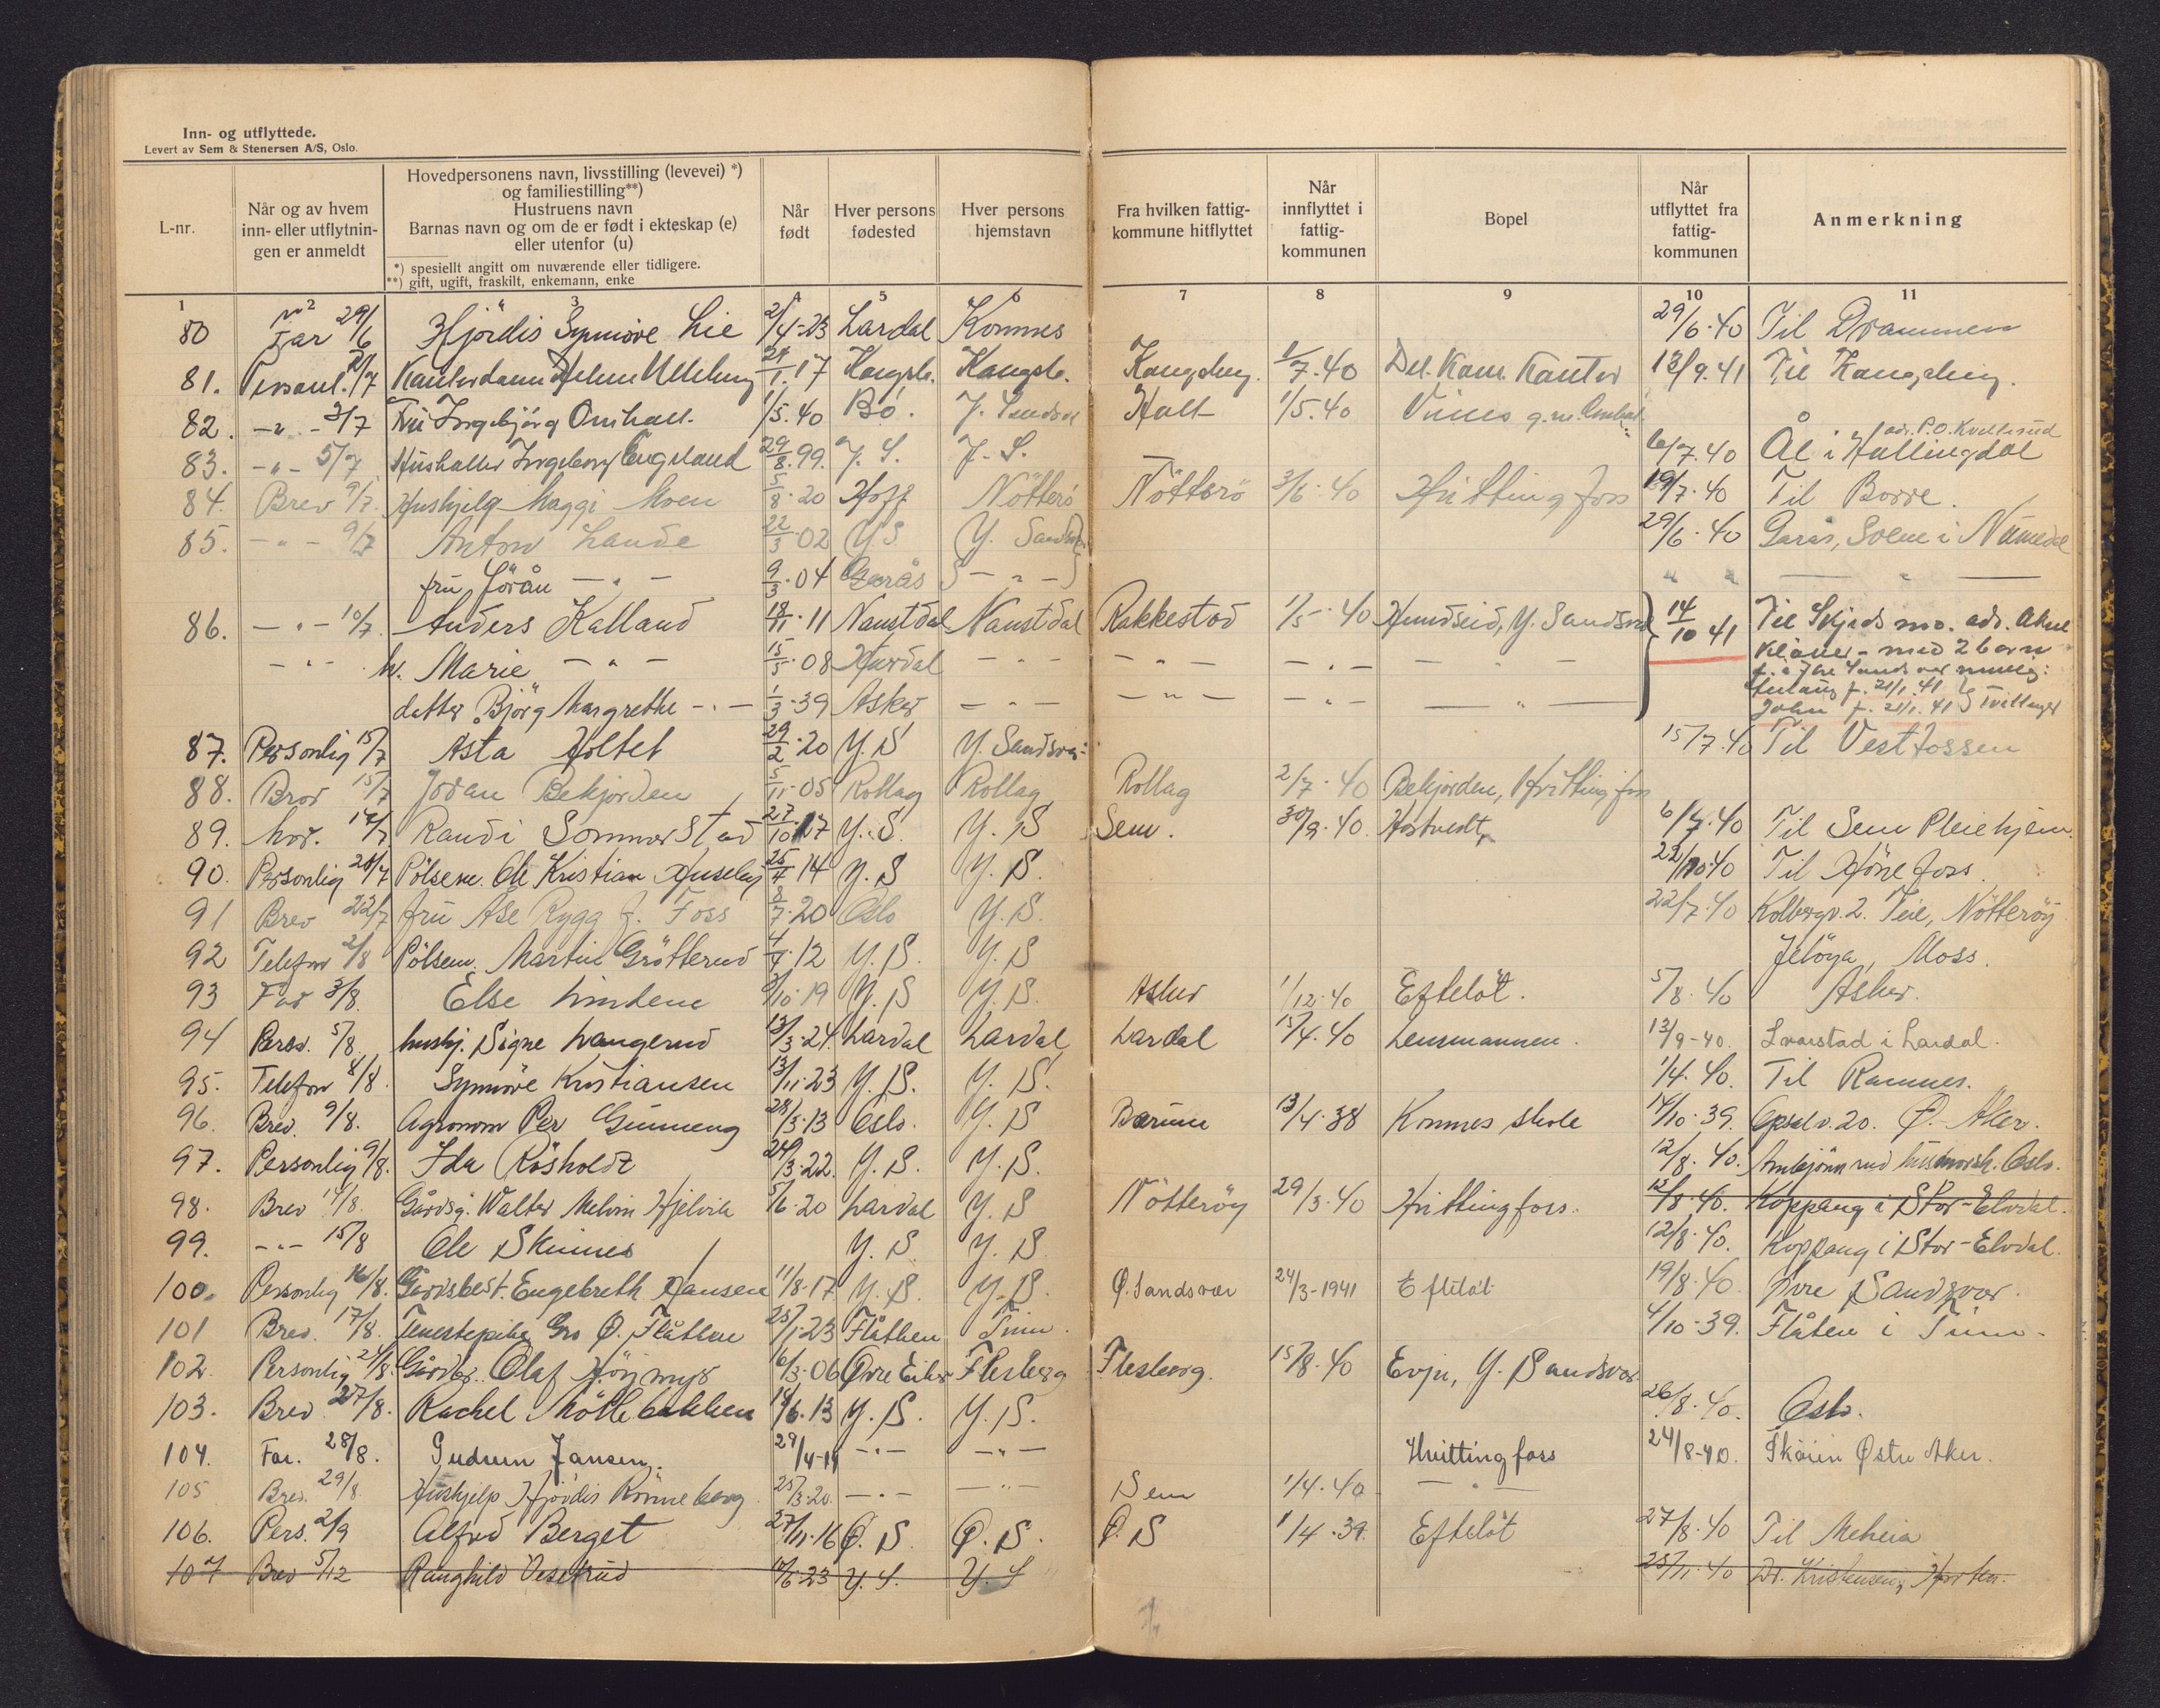 Inn- og utflyttede.
Levert av Sem & Stenersen A/S, Oslo.
L-nr.
Når og av hvem
inn- eller utflytnin-
gen er anmeldt
Hovedpersonens navn, livsstilling (levevei) *)
og familiestilling**)
Hustruens navn
Barnas navn og om de er født i ekteskap (e)
eller utenfor (u)
*) spesiellt angitt om nuværende eller tidligere.
**) gift, ugift, fraskilt, enkemann, enke
Når
født
Hver persons
fødested
Hver persons
hjemstavn
Fra hvilken fattig-
kommune hitflyttet
Når
innflyttet i
fattig-
kommunen
Bopel
Når
utflyttet fra
fattig-
kommunen
Anmerkning
1 2 3 4 5 6 7 8 9 10 11
80 Far 29/6 Hjördis Synnöve Lie 2/4-23 Lardal Komnes 29/6.40 Til Drammen
81. Kongsb. Kongsb. Kongsberg. 1/7.40 Kontor 13/9.41 Til Kongsberg.
82. -"- 3/7 Fru Ingebjörg Omholt. 1/5.40 Bö. Holt 1/5.40
83. -"- 5/7 Ingeborg Engeland 29/8.99. Y. S. Y. S. 6/7.40 Ål i Hallingdal
84. Brev 9/7. Hushjelp Maggi Moen 5/8.20 Hoff Nötterö Nötterö 3/6.40 Hvittingfoss 19/7.40 Til Borre.
85. -"- 9/7 Anton Lande 22/3.02 Y. S Y. Sandsv. 29/6.40 i Numedal
fru Jörån -"- 9/3.04 -"-
86. -"- 10/7. Anders Kalland 18/11.11 Naustdal Naustdal Rakkestad 1/5.40 Hundseid, Y. Sandsvær 14/10 41
h. Marie -"- 15/5.08 Hurdal -"- -"- -"- -"-
datter Björg Margrethe -"- 1/3.39 Asker -"- -"- -"- -"-
John f. 21/1.41 Tvillinger
87. Personlig 15/7 Asta Holtet 29/2.20 Y. S Y. Sandsvær 15/7.40 Til Vestfossen
88. Brev 15/7 Jöran Bekjorden 5/11.05 Rollag Rollag Rollag 2/7.40 Bekjorden, Hvittingfoss
89. Mor. 17/7 Randi Sommerstad 27/10.17 Y. S. Y. S Sem. 30/9.40. Hostvedt, 6/7.40 Til Sem Pleiehjem.
90. Personlig 21/7 Pölsem. Ole Kristian Huseby 25/7.14 Y. S Y. S. 22/10.40 Til Hönefoss.
91 Brev 22/7 fru Åse Rygg f. Foss 8/7.20 Oslo Y. S. 22/7.40 Kolbergv. 2. Teie, Nötteröy
92 Telefon 2/8 Pölsem. Martin Grötterud 4/7.12 Y. S. Y. S Jelöya, Moss.
93 Far 3/8. Else Lindem 9/10.19 Y. S Y. S. Asker 1/12.40 Efteløt. 5/8.40 Asker.
94 Pers. 5/8 hushj. Signe Langerud 13/3.24. Lardal Lardal Lardal 15/4.40 Lensmannen. 13/9-40. Svarstad i Lardal.
95. Telefon 8/8. Synnöve Kristiansen 13/11.23 Y. S. Y. S. 1/4.40. Til Ramnes.
96. Brev. 9/8. Agronom Per Ginneng 28/3.13 Oslo. Y. S Bærum 13/4.38 Komnes skole 14/10.39. Opsalv. 20. Ø. Aker.
97. Personlig 9/8. Ida Rösholdt 24/3.22. Y. S. Y. S. 12/8.40. husmorsk. Oslo.
98. Brev 14/8. Gårdsg. Walter Melvin Hjelvik 5/6.20 Lardal Y. S Nötteröy 29/3.40 Hvittingfoss. 12/8.40. Koppang i Stor-Elvdal.
99. -"- 15/8 Ole Skinnes Y. S. Y. S. 12/8.40. Koppang i Stor-Elvdal.
100. Personlig 16/8. Gårdsbest. Engebreth Hansen 11/8.17 Y. S. Y. S. Ø. Sandsvær 24/3-1941 Efteløt 19/8.40. Øvre Sandsvær.
101 Brev. 17/8. Tenestepike Gro Ø. Flåthen 25/1.23 Flåthen Tinn. 4/10.39. Flåten i Tinn.
102. Personlig 21/8. Gårdbr. Olaf Höymyr 16/3.06 Øvre Eiker Flesberg Flesberg. 15/8.40 Evju, Y. Sandsvær
103. Brev 27/8. Rachel Möllebakken 14/6.13 Y. S. Y. S. 26/8.40. Oslo.
104. Far. 28/8. Gudrun Jansen. 29/4-14 -"- -"- Hvittingfoss 24/8-40. Skøien Østre Aker.
105 Brev. 29/8. Hushjelp Hjördis Rönneberg 25/3.20. -"- -"- Sem 1/4.40 -"-
106. Pers. 2/9 Alfred Berget 27/11.16 Ø. S. Ø. S. Ø. S 1/4.39. Efteløt 27/8.40 Til Meheia
107 Brev 5/12 Ranghild Vesetrud 10/6.23 Y. S. Y. S 25/11.40 Dr. Kristensen, Horten.